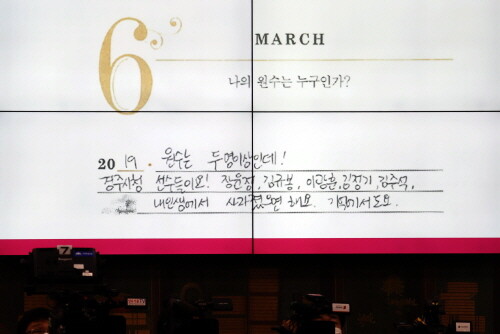 6
MARCH
나의 원수는 누구인가?
2019. 원수는 두명이상인데!
경주시청 선수들이요! 장윤정, 김규봉, 이광훈, 김정기, 김주석,
내인생에서 사라졌으면 해요. 기억에서도요.